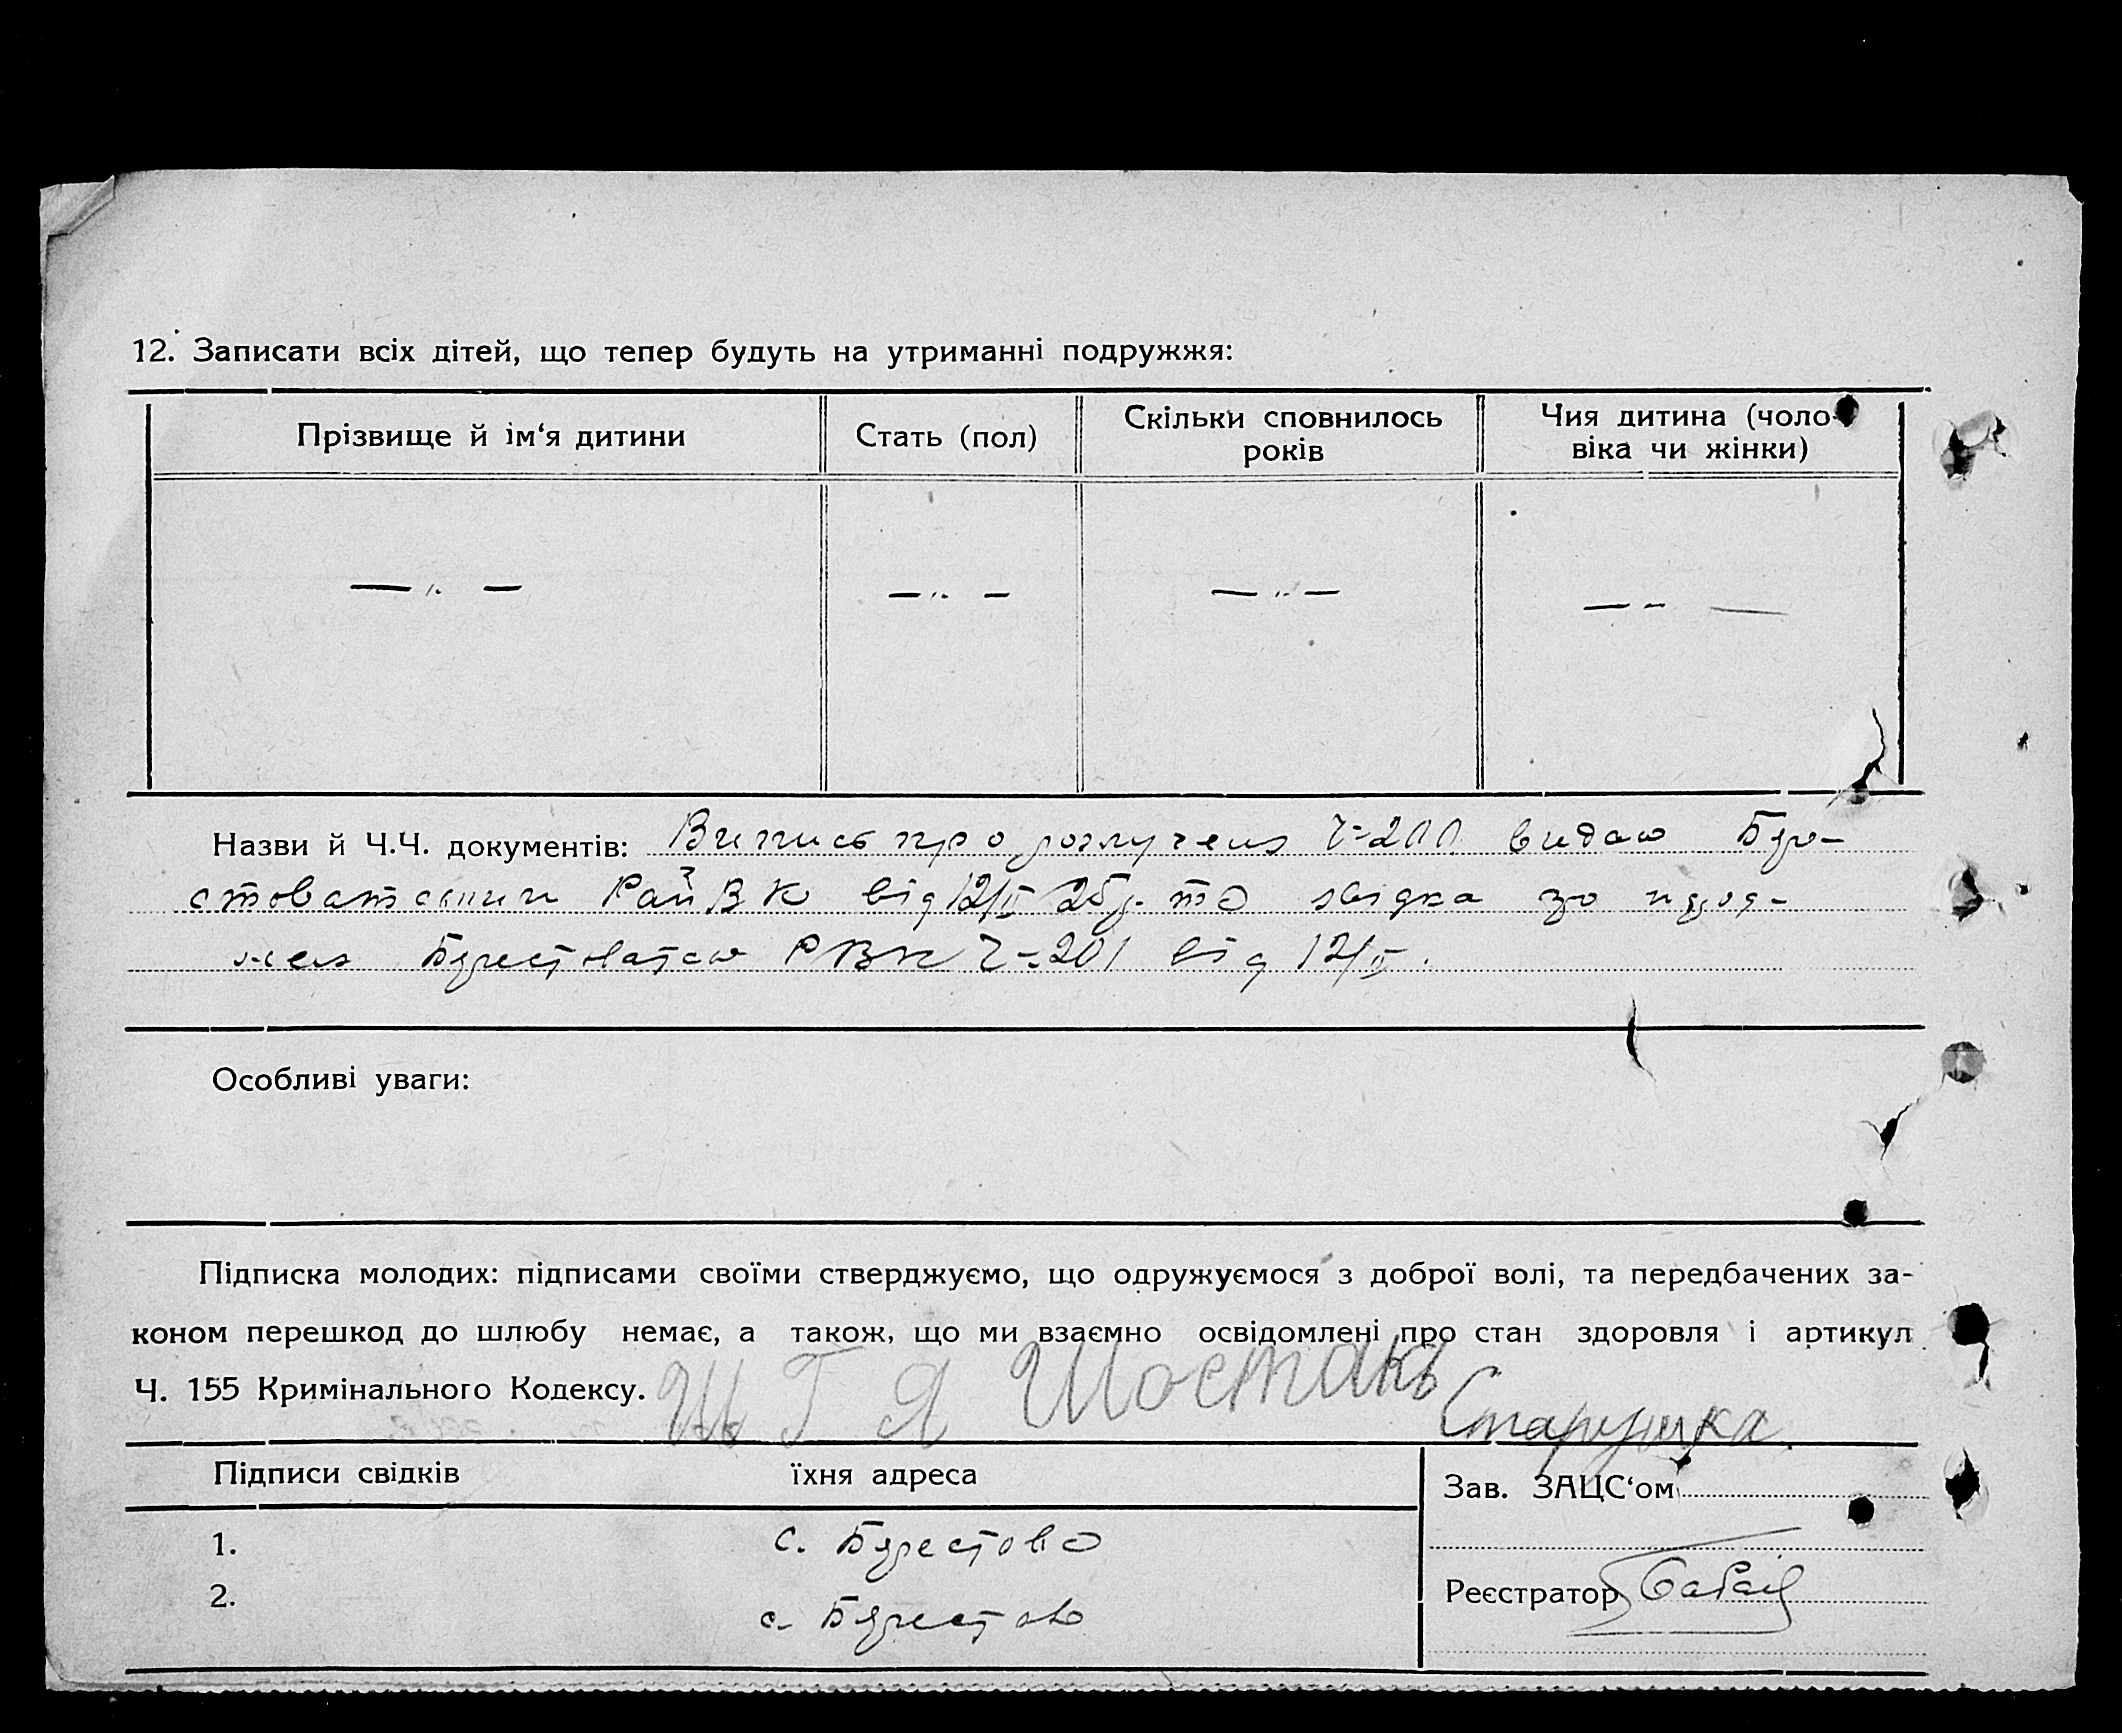 12. Записати всіх дітей, що тепер будуть на утриманні подружжя:
Прізвище й ім‘я дитини
Стать (пол)
Скільки сповнилось
років
Чия дитина (чоло-
віка чи жінки)
— „ —
— „ —
— „ —
— „ —
Назви й Ч.Ч. документів: Випись про Ч=200 видано
РайВК від 12/II та звідка
РВК Ч=201 від 12/II.
Особливі уваги:
Підписка молодих: підписами своїми стверджуємо, що одружуємося з доброї волі, та передбачених за-
коном перешкод до шлюбу немає, а також, що ми взаємно освідомлені про стан здоровля і артикул
Ч. 155 Кримінального Кодексу. Ш Г Я Шостакъ Старушка
Підписи свідків
їхня адреса
Зав. ЗАЦС‘ом
1. с. Берестово
2. с. Берестово
Реєстратор